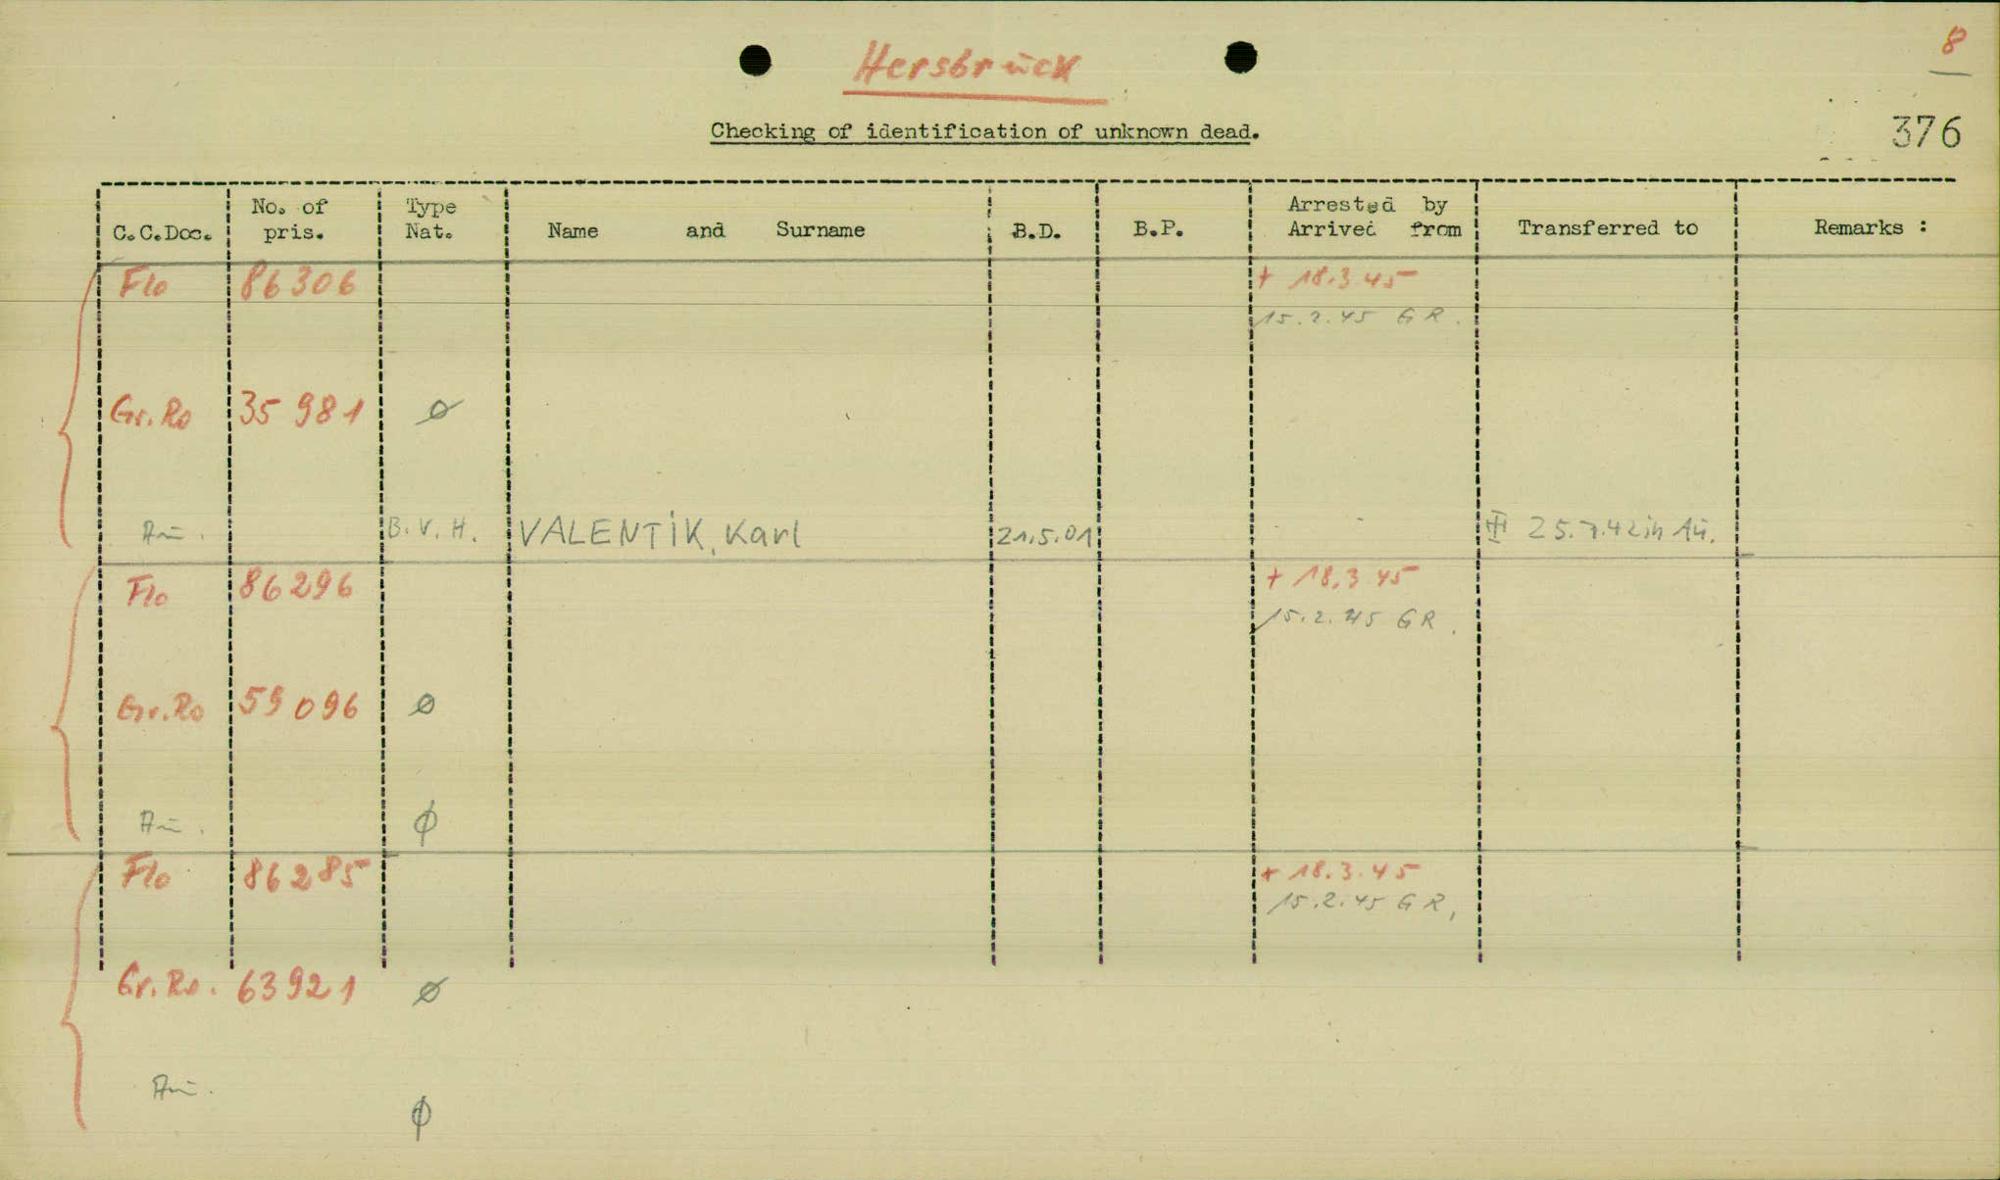 8
Hersbrück
Checking of identification of unknown dead.
376
C.C.Doc. No. of pris. Type Nat. Name and Surname B.D. B.P. Arrested by Arrived from Transferred to Remarks :
Flo 86306 + 18.3.45
15.2.45 GR.
Gr.Ro 35981 ø
Au. B.V.H. VALENTIK, Karl 21.5.01 III 25.7.42 in Au.
Flo 86296 + 18.3.45
15.2.45 GR.
Gr.Ro 59096 ø
Au. ø
Flo 86285 + 18.3.45
15.2.45 GR,
Gr.Ro. 63921 ø
Au.
ø